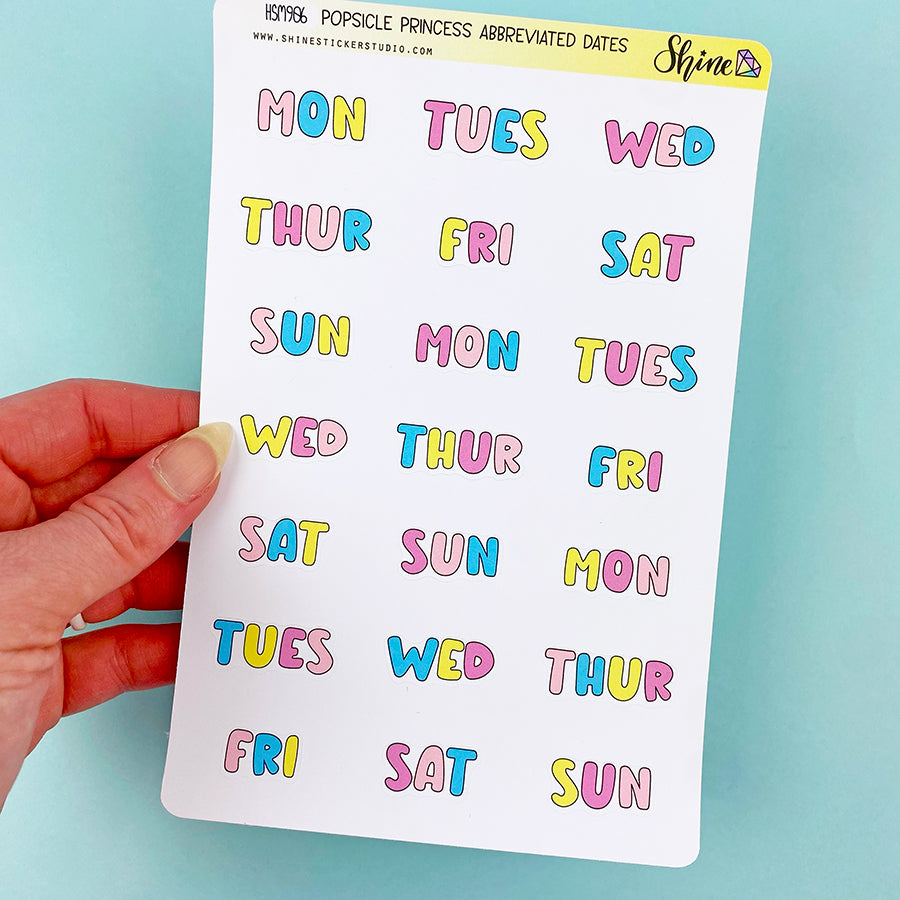 HSM986 POPSICLE PRINCESS ABBREVIATED DATES Shine
WWW.SHINESTICKERSTUDIO.COM
MON TUES WED
THUR FRI SAT
SUN MON TUES
WED THUR FRI
SAT SUN MON
TUES WED THUR
FRI SAT SUN